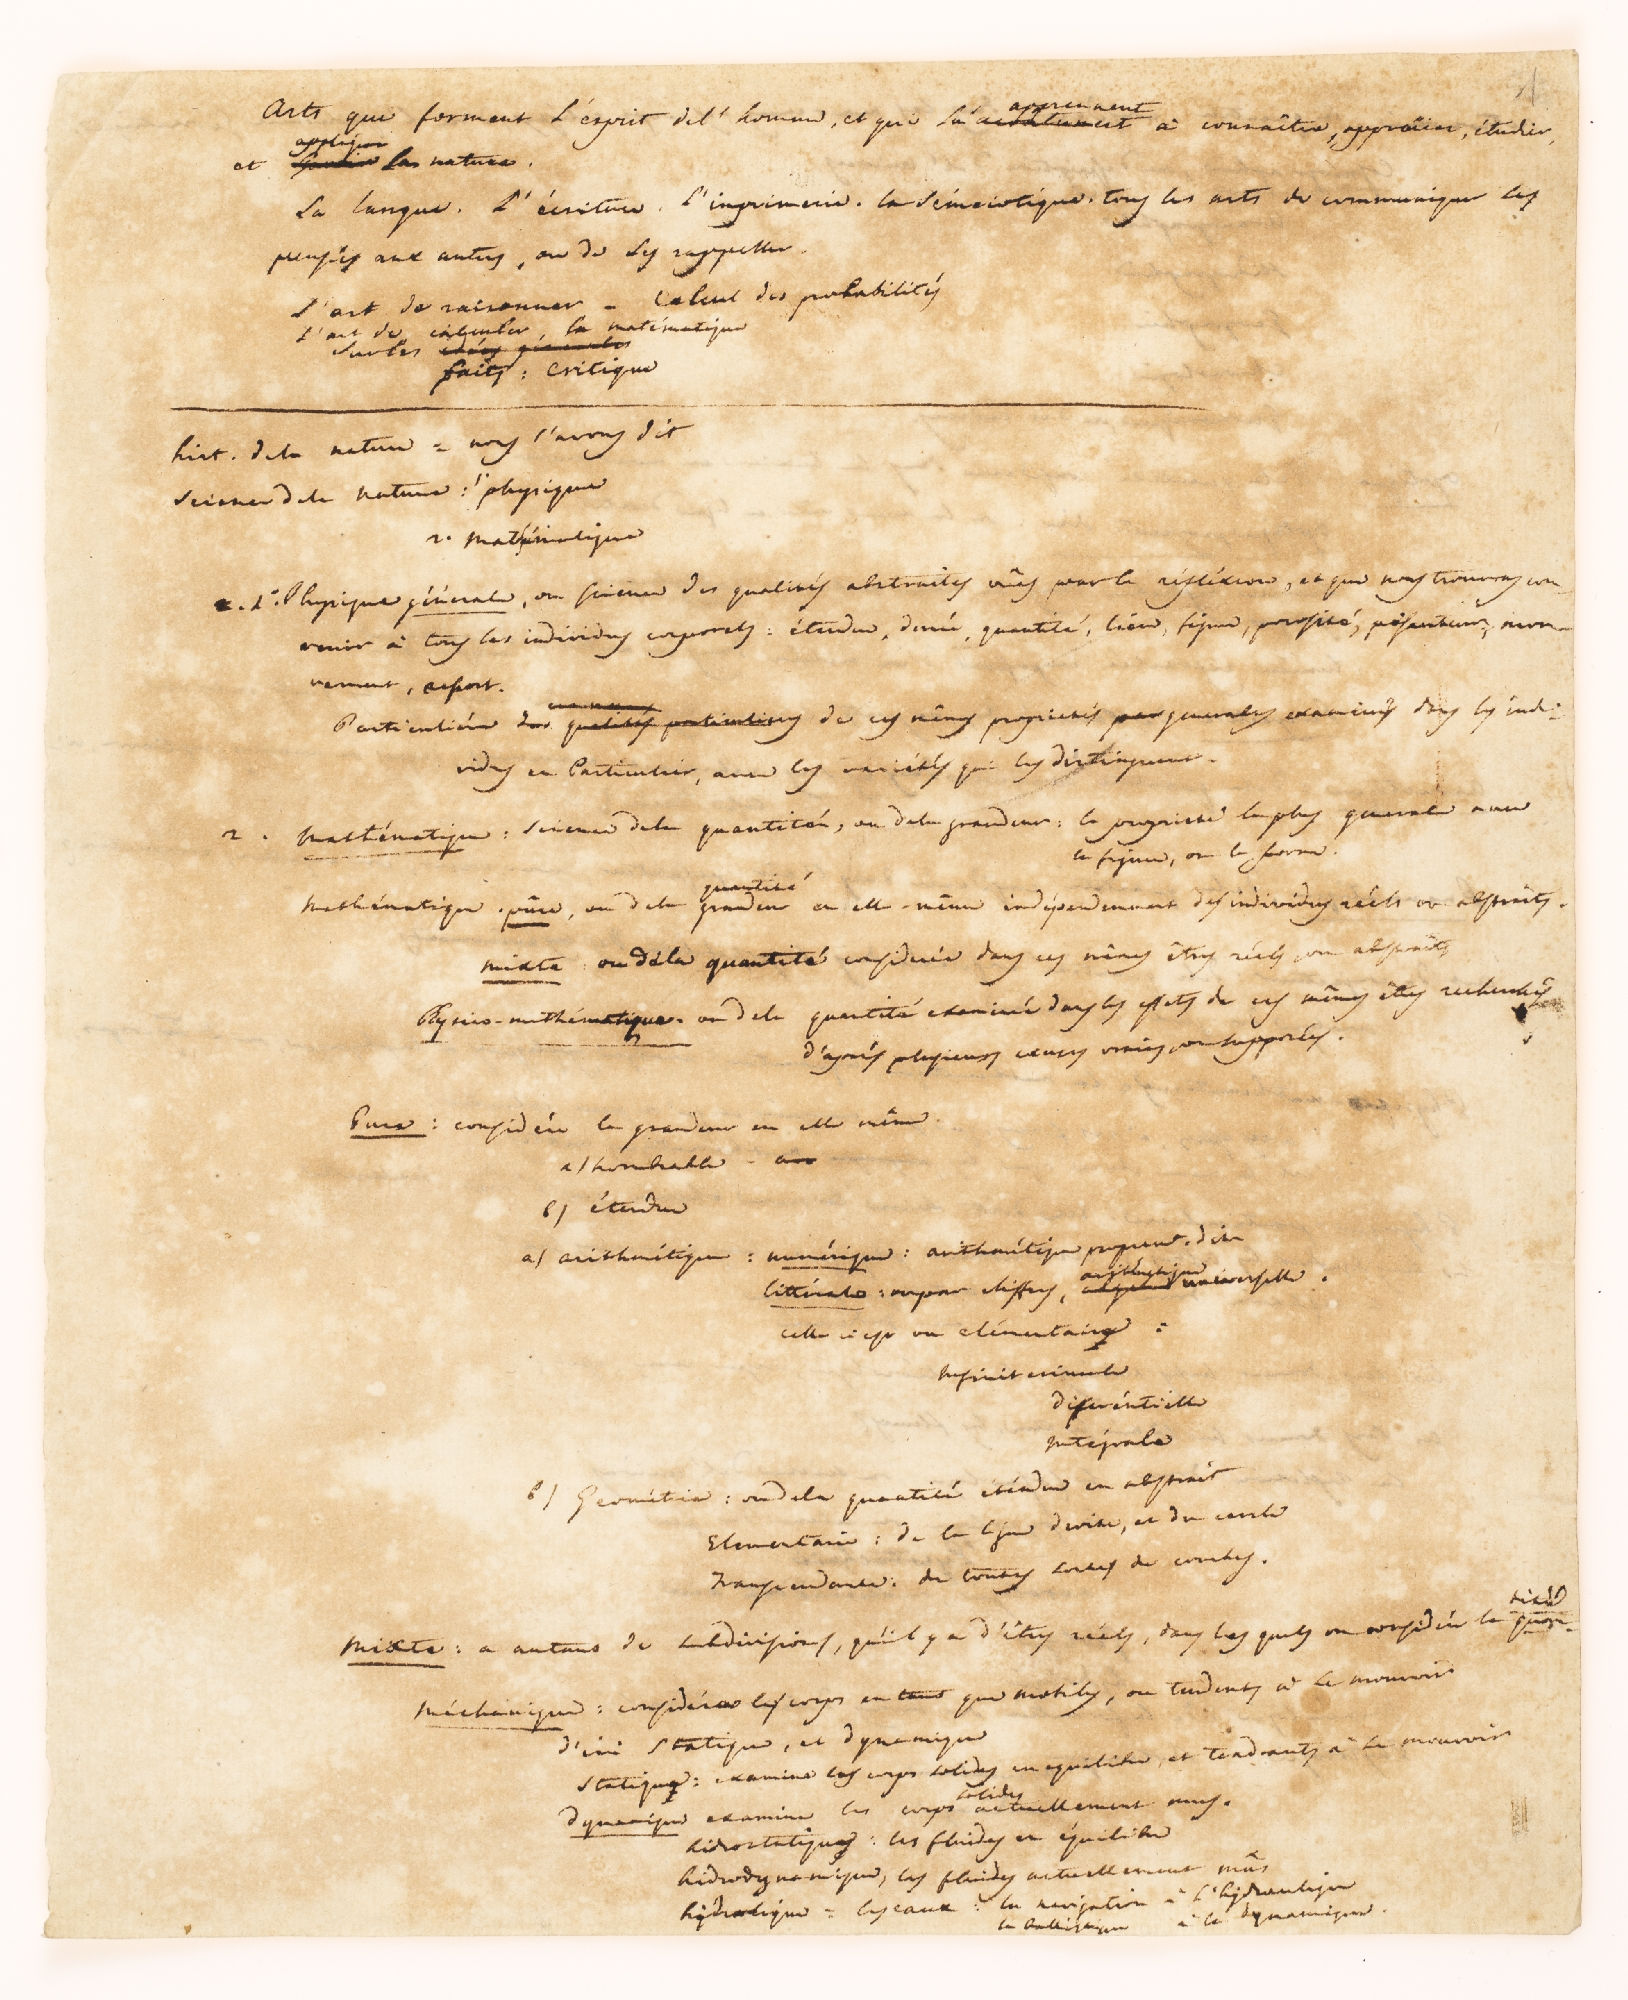 Arts que forment l'esprit de l'homme, et qui lui apprennent à connaître, apprécier, étudier,
et appliquer la nature.
La langue. L'écriture. l'imprimerie. la Sémeiotique. tous les arts de communiquer les
pensées aux autres, ou de les rappeller.
L'art de raisonner - Calcul des probabilités
L'art de calculer, la matématique
sur les idées générales
faits : Critique
hist. de la nature = nous l'avons dit
Science de la nature : 1° physique
2. Mathématique
1°. Physique générale, ou science des qualités abstraites vues par la réfléxion, et que nous trouvons con
venir à tous les individus corporels : étendue, durée, quantité, lieu, figure, porosité, pésanteur, mou
vement, repos.
Particulière des qualités particulières de ces mêmes proprietés generales examinées dans les indi-
vidus en Particulier, avec les variétés qui les distinguent.
2. Mathématique : science de la quantité, ou de la grandeur : la proprieté la plus generale avec
la figure, ou la forme.
Mathématique pûre, ou de la quantité grandeur en elle-même indépendemment des individus réels ou abstraits.
mixte ou de la quantité considerée dans ces mêmes êtres réels ou abstraits
Physico-mathématique. ou de la quantité examinée dans les effets de ces mêmes êtres recherchés
d'après plusieurs causes vraies, ou supposées.
Pure : considére la grandeur en elle même
a) nombrable
b) étendue
a) arithmétique : numérique : arithmétique proprem. dite
littérale : ou par chiffres, arithmétique universelle.
celle ci est ou elémentaire :
Infinitesimale
diférentielle
Intégrale
b) Geométrie : ou de la quantité étendue en abstrait
Elementaire : de la ligne droite, et du cercle
Transcendante : de toutes sortes de courbes.
Mixte : a autant de subdivisions, qu'il y a d'êtres réels, dans les quels on considére la quan-
tité
Méchanique : considére les corps en tant que mobiles, ou tendents à se mouvoir
d'ici Statique, et dynamique
Statique : examine les corps solides en equilibre, et tendants à se mouvoir
dynamique examine les corps solides actuellement mus.
hidrostatique : les fluides en équilibre
hidrodynamique, les fluides actuellement mûs
hydrolique = les eaux : la navigation à l'hydraulique
la ballistique à la dynamique.